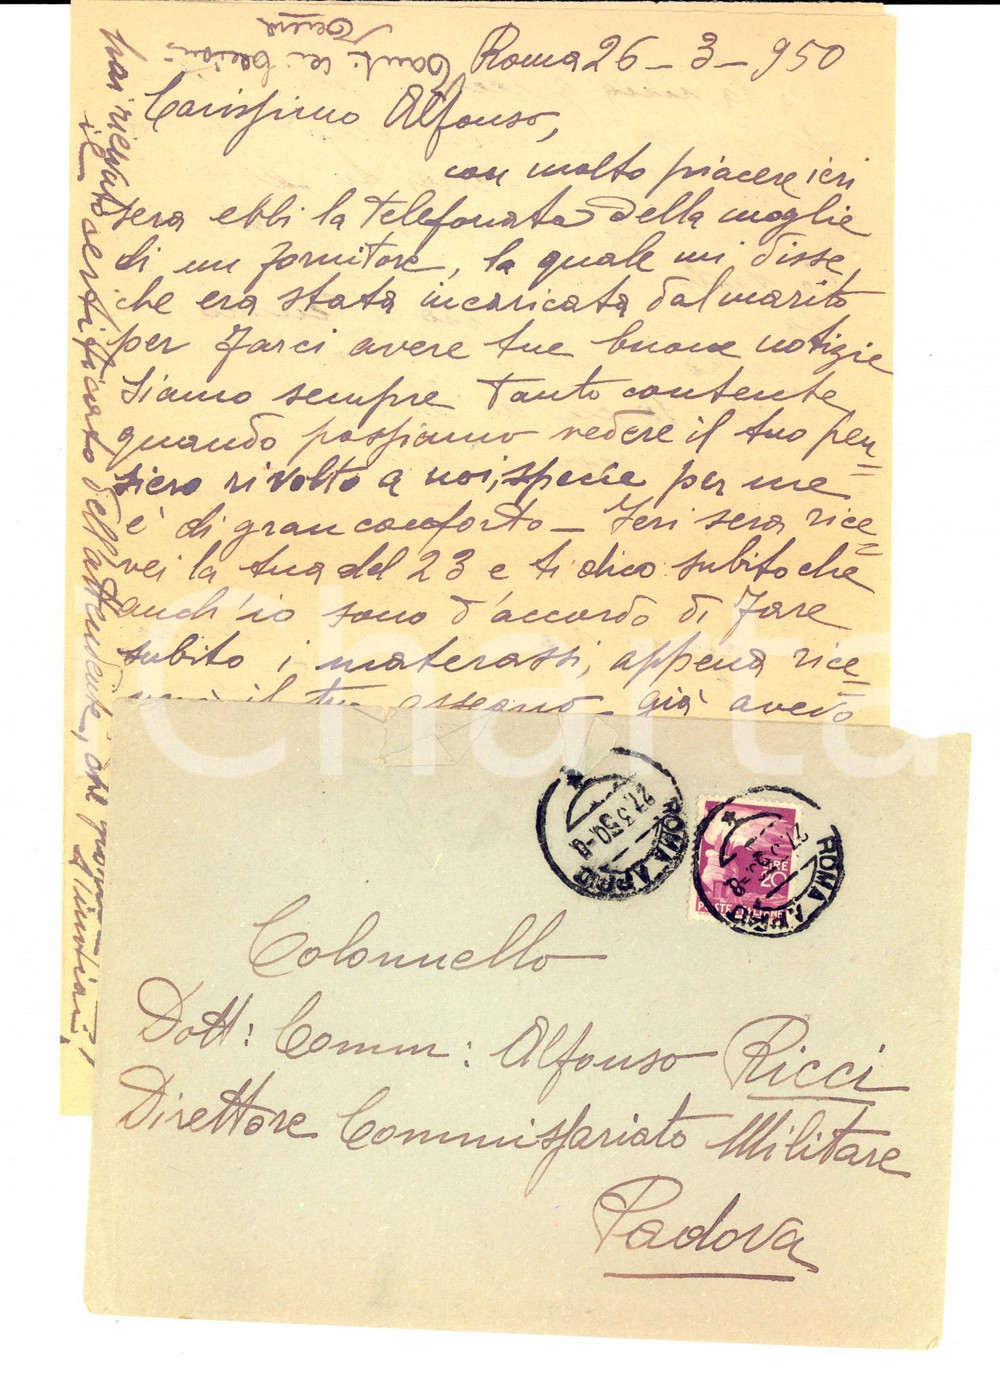 Roma 26-3-950
Carissimo Alfonso,
con molto piacere ieri
sera ebbi la telefonata della moglie
di un fornitore, la quale mi disse
che era stata incaricata dal marito
per farci avere tue buone notizie
Siamo sempre tanto contente
quando possiamo vedere il tuo pen=
siero rivolto a noi, specie per me
è di gran conforto - Ieri sera rice=
vei la tua del 23 e ti dico subito che
anch'io sono d'accordo di fare
subito i materassi, appena rice=
il tuo assegno - già avevo
hai ricevuto
il certificato dell'attendente, che
Tanti cari bacioni
Charta
ROMA APPIO
27.3.50.-8
ROMA APPIO
LIRE
20
POSTE ITALIANE
Colonnello
Dott: Comm: Alfonso Ricci
Direttore Commissariato Militare
Padova